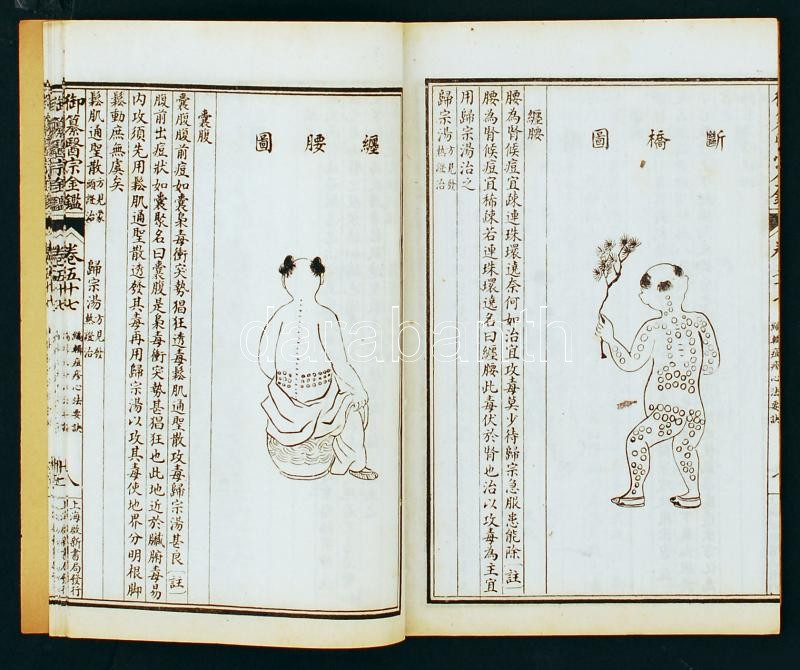 斷橋圖
纏腰
腰為腎候痘宜疎連珠環遶奈何如治宜攻毒莫少待歸宗急服患能除
註
腰為腎候痘宜稀疎若連珠環遶名曰纏腰此毒伏於腎也治以攻毒為主宜
用歸宗湯治之
歸宗湯方見發熱證治
編輯痘疹心法要訣
纏腰圖
囊腹
囊腹腹前痘如囊梟毒衝突勢猖狂透毒鬆肌通聖散攻毒歸宗湯甚良
註
腹前出痘狀如囊聚名曰囊腹是梟毒衝突勢甚猖狂也此地近於臟腑毒易
內攻須先用鬆肌通聖散透發其毒再用歸宗湯以攻其毒使地界分明根脚
鬆動庶無虞矣
鬆肌通聖散方見蒙頭證治
歸宗湯方見發熱證治
御纂醫宗金鑑
卷五十七
編輯痘疹心法要訣
八
上海啟新書局發行
darabanth